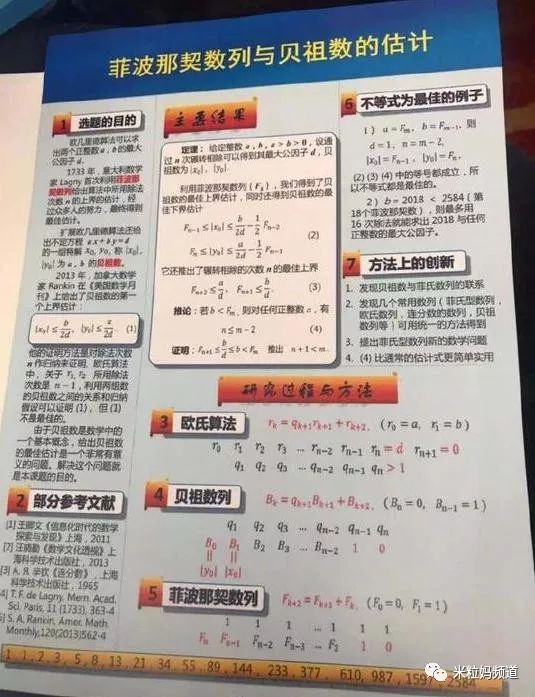 菲波那契数列与贝祖数的估计
1 选题的目的
欧几里德算法可以求
出两个正整数 a, b 的最大
公因子 d.
1733 年,意大利数学
家 Lagny 首次利用菲波那
契数列给出算中所用除法
次数 n 的上界的估计,经
过众多人的努力,最终得到
最佳估计。
扩展欧几里德算法还给
出不定方程 ax+by=d
的一组特解 x₀, y₀, 称 |x₀|,
|y₀| 为 a, b 的贝祖数。
2013 年,加拿大数学
家 Rankin 在《美国数学月
刊》上给出了贝祖数的第一
个上界估计:
|x₀| ≤ b/2d, |y₀| ≤ a/2d. (1)
他的证明方法是对除法次数
n 作归纳来证明. 欧氏算法
中,关于 r₁, r₂ 所用除法
次数是 n − 1,利用两组数
的贝祖数之间的关系和归纳
假设可以证明 (1),但 (1)
不是最佳的。
由于贝祖数是数学中的
一个基本概念,给出贝祖数
的最佳估计是一个非常有意
义的问题。解决这个问题就
是本课题的目的。
2 部分参考文献
[1] 王卿文《信息化时代的数学
探索与发现》上海,2011
王晓勤《数学文化透视》上
海科学技术出版社,2013
[3] A. Я. 辛钦《连分数》,上海
科学技术出版社,1965
4] T. F. de Lagny, Mem. Acad.
Sci. Paris, 11 (1733), 363-4
5] S. A. Rankin, Amer. Math.
Monthly,120(2013)562-4
主要结果
定理:给定整数 a, b, a > b > 0,设通
过 n 次辗转相除可以得到其最大公因子 d,贝
祖数为 |x₀|, |y₀|.
利用菲波那契数列 {Fₖ},我们得到了贝
祖数的最佳上界估计,同时还得到贝祖数的最
佳下界估计
Fₙ₋₁ ≤ |x₀| ≤ b/2d − 1/2 Fₙ₋₂
(2)
Fₙ ≤ |y₀| ≤ a/2d − 1/2 Fₙ₋₁
它还推出了辗转相除的次数 n 的最佳上界
Fₙ₊₂ ≤ a/d, Fₙ₊₁ ≤ b/d. (3)
推论:若 b < Fₘ,则对任何正整数 a,有
n ≤ m − 2 (4)
证明:Fₙ₊₁ ≤ b/d ≤ b < Fₘ 推出 n + 1 < m.
6 不等式为最佳的例子
1) a = Fₘ, b = Fₘ₋₁, 则
d = 1, n = m − 2,
|x₀| = Fₙ₋₁, |y₀| = Fₙ.
(2) (3) (4) 中的等号都成立,所
以不等式都是最佳的。
2) b = 2018 < 2584(第
18个菲波那契数),则最多用
16 次除法就能求出 2018 与任何
正整数的最大公因子。
7 方法上的创新
1. 发现贝祖数与菲氏数列的联系
2. 发现几个常用数列(菲氏型数列,
欧氏数列,连分数的数列,贝祖
数列等)可用统一的方法得到
3. 提出菲氏型数列新的数学问题
4. (4) 比通常的估计式更简单实用
研究过程与方法
3 欧氏算法 rₖ = qₖ₊₁rₖ₊₁ + rₖ₊₂, (r₀ = a, r₁ = b)
r₀ r₁ r₂ r₃ ... rₙ₋₂ rₙ₋₁ rₙ = d rₙ₊₁ = 0
q₁ q₂ q₃ ... qₙ₋₂ qₙ₋₁ qₙ > 1
4 贝祖数列 Bₖ = qₖ₊₁Bₖ₊₁ + Bₖ₊₂, (Bₙ = 0, Bₙ₋₁ = 1)
q₁ q₂ q₃ ... qₙ₋₂ qₙ₋₁ qₙ
B₀ B₁ B₂ B₃ ... Bₙ₋₂ 1 0
|| ||
|y₀| |x₀|
5 菲波那契数列 Fₖ₊₂ = Fₖ₊₁ + Fₖ, (F₀ = 0, F₁ = 1)
1 1 1 ... 1 1 1
Fₙ Fₙ₋₁ Fₙ₋₂ Fₙ₋₃ ... F₂ 1 0
1, 1, 2, 3, 5, 8, 13, 21, 34, 55, 89, 144, 233, 377, 610, 987, 1597, 2584
米粒妈频道